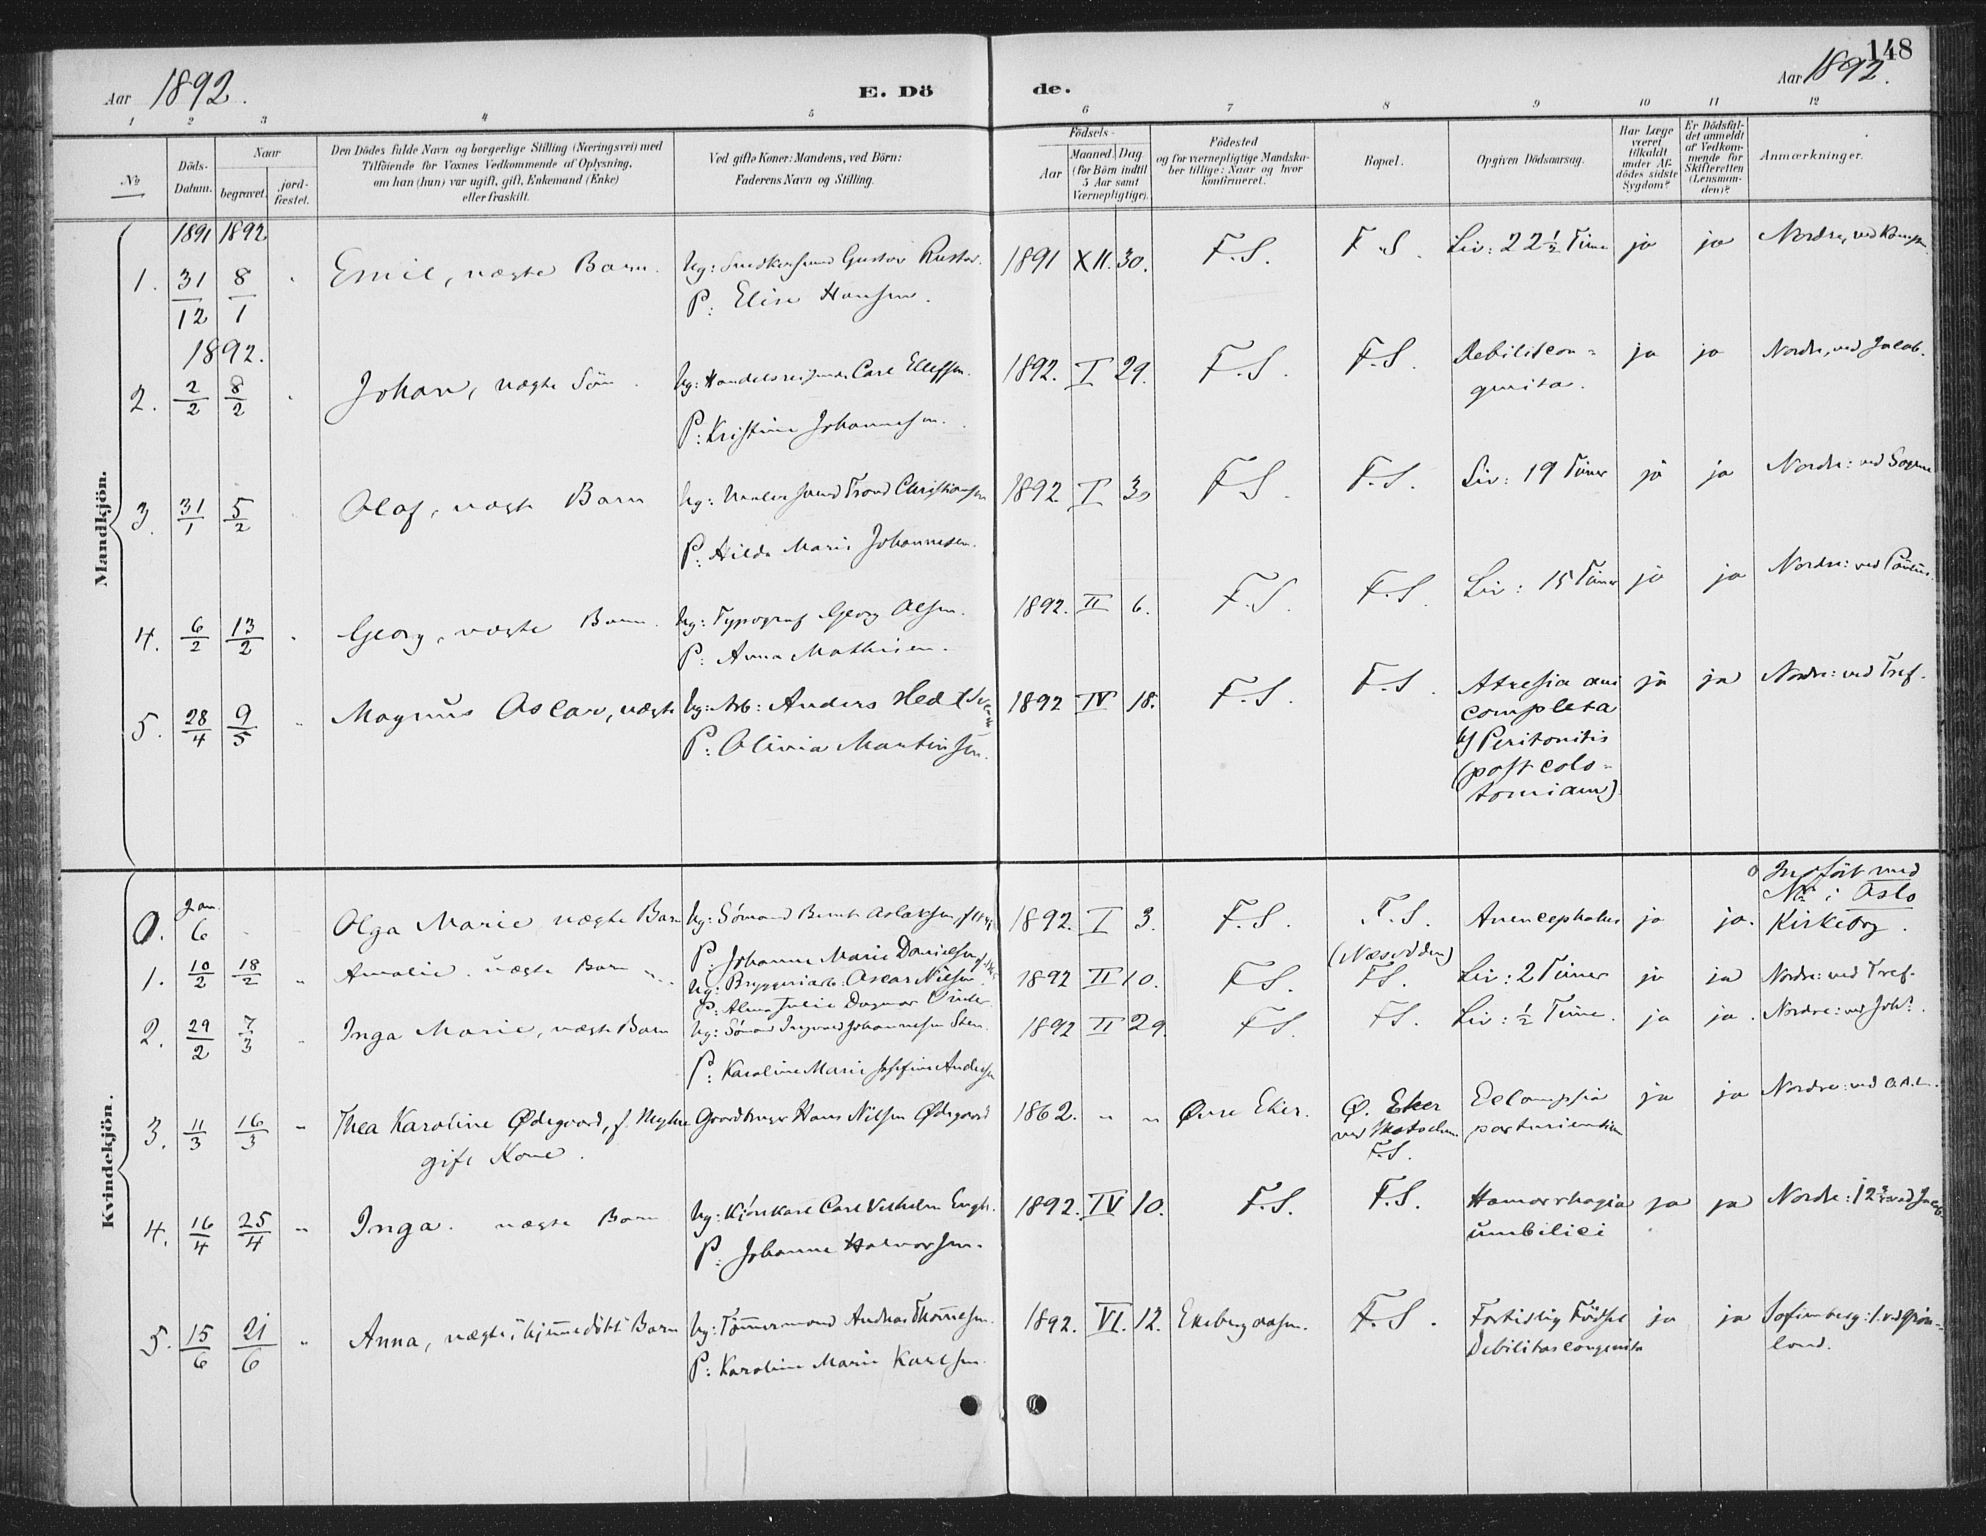 148
Aar 1892.
E. Dö
de.
Aar 1892.
1 2 3 4 5 6 7 8 9 10 11 12
№
Döds-Datum.
Naar
begravet.
jord-fæstet.
Den Dödes fulde Navn og borgerlige Stilling (Næringsvei) med
Tilföiende for Voxnes Vedkommende af Oplysning,
om han (hun) var ugift, gift, Enkemand (Enke)
eller fraskilt.
Ved gifte Koner: Mandens, ved Börn:
Faderens Navn og Stilling.
Födsels-
Aar
Maaned. Dag
(for Börn indtil
5 Aar samt
Værnepligtige).
Födested
og for værnepligtige Mandska-
ber tillige: Naar og hvor
konfirmeret.
Bopæl.
Opgiven Dödsaarsag.
Har Læge
været
tilkaldt
under Af-
dödes sidste
Sygdom?
Er Dödsfal-
det anmeldt
af Vedkom-
mende for
Skifteretten
(Lensman-
den)?
Anmærkninger.
Mandkjön.
1891 1892
1. 31/12 8/1 Emil, uægte Barn. Ug: Snedkersvend Gustav Rustad. 1891 XII. 30. F.S. F.S. Liv: 22 ½ Time ja ja Nordre, ved
P: Elise Hansen.
1892.
2. 2/2 8/2 Johan, uægte Søn. Ug: Handelsreisende Carl Ellefsen. 1892. I 29. F.S. F.S. Debilit con- ja ja Nordre, ved Jacob.
P: Kristine Johannesen. genita.
3. 31/1 5/2 Olaf, uægte Barn Ug: Malersvend Trond Christiansen 1892 I 30 F.S. F.S. Liv: 19 Timer ja ja Nordre: ved
P: Hilda Marie Johannesen.
4. 6/2 13/2 Georg, uægte Barn. Ug: Typograf Georg Olsen. 1892. II 6. F.S. F.S. Liv: 15 Timer ja ja Nordre: ved Paulus.
P: Anna Mathisen.
5. 28/4 9/5 Magnus Oscar, uægte Ug: Arb: Anders 1892 IV 18. F.S. F.S. Atresia ani ja ja Nordre: ved Tref.
P: Olivia Martinsen. completa
b) Peritonitis
(post colo-
tomiam)
Kvindekjön.
0. Jan. 6 Olga Marie uægte Barn Ug: Sømand Bernt Aslaksen, 1892. I 3. F.S. F.S. (Næsodden) Anencephalus ja ja. Indført med
P: Johanne Marie Danielsen № i Oslo
Kirkebog.
1. 10/2 18/2 Amalie. uægte Barn Ug: Bryggeriarb: Oscar Nilsen 1892 II 10. F.S. F.S. Liv: 2 Timer ja ja Nordre: ved Tref.
P: Alma Julie Dagmar
2. 29/2 7/3 Inga Marie, uægte Barn Ug: Sømand Ingvard Johannesen 1892 II 29. F.S. F.S. Liv: ½ Time. ja ja. Nordre: ved Joh?.
P: Karoline Marie Josefine Andersen
3. 11/3 16/3 Thea Karoline Ødegaard, f. Gaardbruger Hans Nilsen Ødegaard 1862. " " Øvre Eker. Ø. Eker Eclampsia ja ja Nordre: ved
gift Kone. ved parturientium
F.S.
4. 16/4 25/4 " Inga. uægte Barn Ug: Kjørekarl Carl Vilhelm 1892. IV 10. F.S. F.S. Hæmorrhagia ja ja Nordre: ved Jacob
P: Johanne Halvorsen. umbilici
5. 15/6 21/6 Anna, uægte, "hjemmedøbt" Barn Ug: Tømmermand Andreas Thomesen. 1892. VI. 12. Ekebergaasen. F.S. Fortidlig Fødsel ja ja Sofienberg: ved Grøn-
P: Karoline Marie Karlsen. Debilitas congenita land.